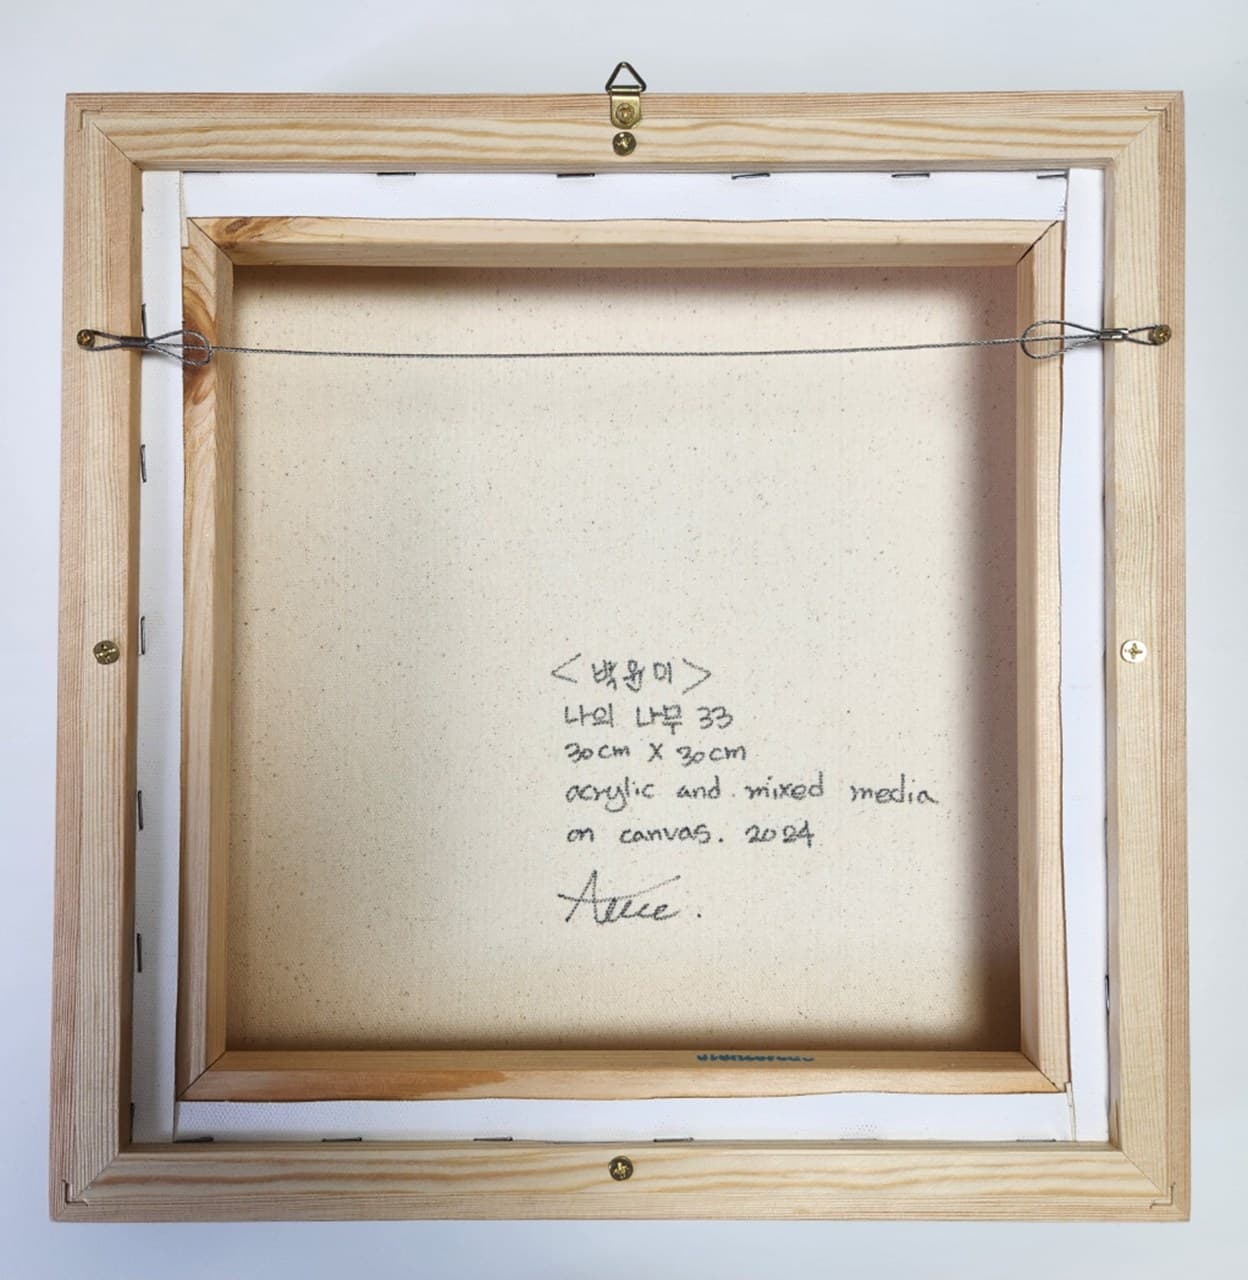 <백윤미>
나의 나무 33
30cm X 30cm
acrylic and mixed media
on canvas. 2024